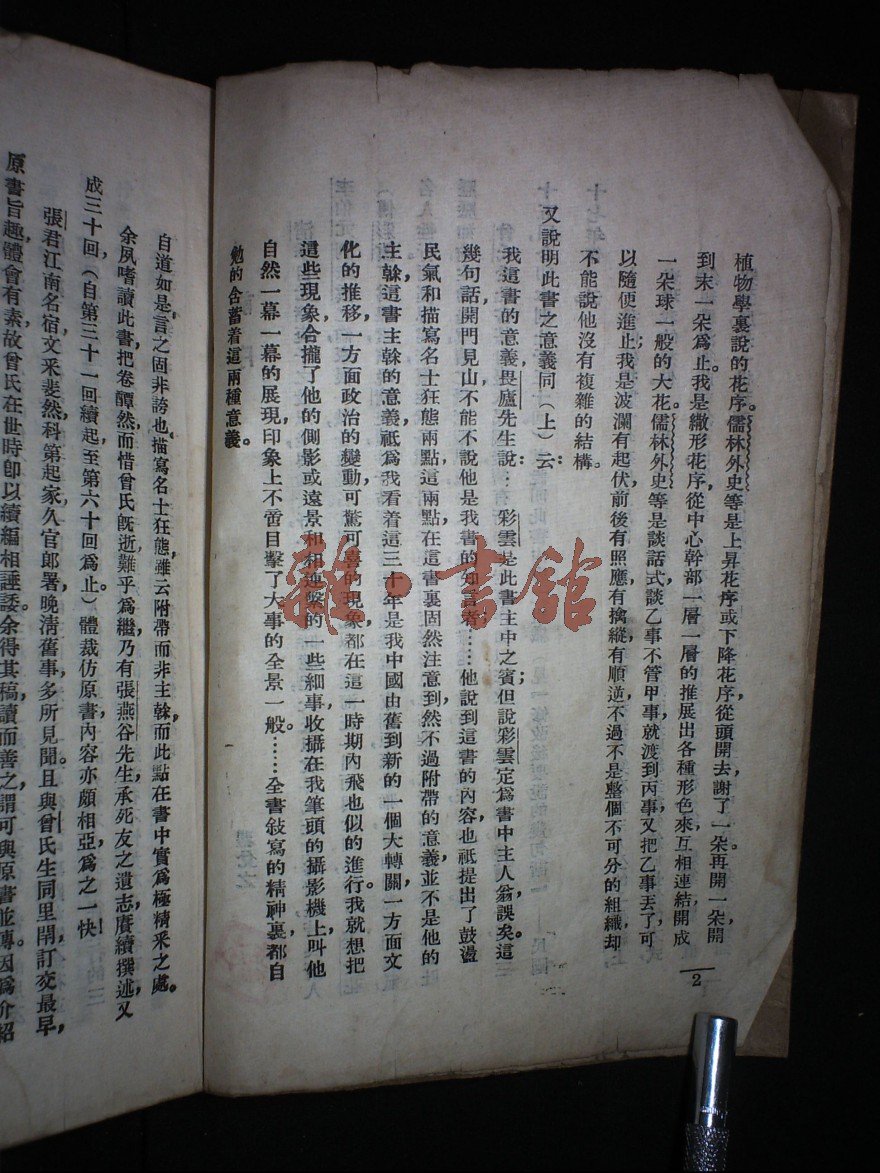 植物學裏說的花序。儒林外史等是上昇花序或下降花序，從頭開去，謝了一朶，再開一朶，開
到末一朶爲止。我是繖形花序，從中心幹部一層一層的推展出各種形色來，互相連結，開成
一朶球一般的大花。儒林外史等是談話式，談乙事不管甲事，就渡到丙事，又把乙事丟了，可
以隨便進止；我是波瀾有起伏，前後有照應，有擒縱，有順逆，不過不是整個不可分的組織，却
不能說他沒有複雜的結構。
又說明此書之意義同（上）云：
我這書的意義，畏廬先生說：彩雲是此書主中之賓，但說彩雲定爲書中主人翁，誤矣。這
幾句話，開門見山，不能不說他是我書的知言者……他說到這書的內容，也祇提出了鼓盪
民氣和描寫名士狂態兩點，這兩點，在這書裏固然注意到，然不過附帶的意義，並不是他的
主幹。這書主幹的意義，祇爲我看着這三十年，是我中國由舊到新的一個大轉關，一方面文
化的推移，一方面政治的變動，可驚可喜的現象，都在這一時期內飛也似的進行。我就想把
這些現象，合攏了他的側影或遠景和相連繫的一些細事，收攝在我筆頭的攝影機上，叫他
自然一幕一幕的展現，印象上不啻目擊了大事的全景一般。……全書敍寫的精神裏，都自
勉的含蓄着這兩種意義。
2
自道如是，言之固非誇也。描寫名士狂態，雖云附帶而非主幹，而此點在書中實爲極精釆之處。
余夙嗜讀此書，把卷醰然，而惜曾氏旣逝，難乎爲繼，乃有張燕谷先生承死友之遺志，賡續撰述，又
成三十回，（自第三十一回續起，至第六十回爲止。）體裁仿原書，內容亦頗相亞，爲之一快！
張君江南名宿，文釆斐然，科第起家，久官郎署，晚清舊事，多所見聞。且與曾氏生同里閈，訂交最早，
原書旨趣，體會有素，故曾氏在世時，卽以續編相諈諉。余得其稿，讀而善之，謂可與原書並傳。因爲介紹
雜·書館